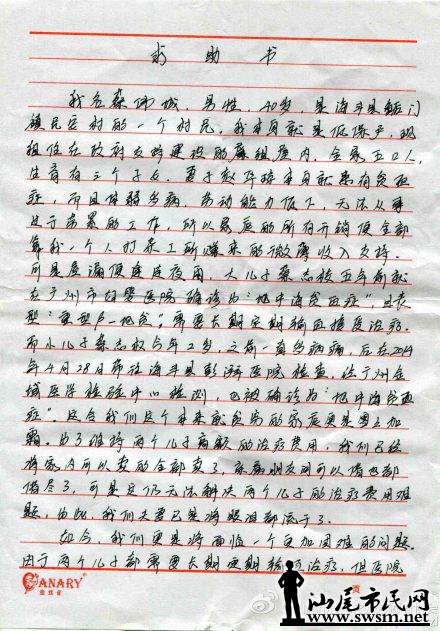 求助书
我名蔡伟城，男性，40岁，是海丰县鲘门
镇民安村的一个村民。我本身就是低保户，现
租住在政府支持建设的廉租屋内。全家五口人，
生育有三个子女，妻子敖阵培本身就患有贫血
症，而且体弱多病，劳动能力低下，无法从事
过于劳累的工作，所以家庭的所有开销便全部
靠我一个人打杂工所赚来的微薄收入支持。
可是屋漏便连连夜雨，大儿子蔡志 五年前就
在广州市妇婴医院确诊为“地中海贫血症”，且表
型“重型β-地贫”，需要长期定期输血接受治疗。
而小儿子蔡志权今年2岁，之前一直多病痛，后在2014
年4月28日带往海丰县彭湃医院检查，经广州金
域医学检验中心检测，也被确诊为“地中海贫血
症”。这令我们这个本来就贫穷的家庭更是雪上加
霜。为了维持两个儿子高额的治疗费用，我们已经
将家内可以卖的全部卖了，亲戚朋友间可以借也都
借尽了，可是这仍无法解决两个儿子的治疗费用难
题，为此，我们夫妻已是将眼泪都流干了。
如今，我们更是将面临一个更加困难的问题。
由于两个儿子都需要长期定期输血治疗，但医院
CANARY
页
汕尾市民网
www.swsm.net